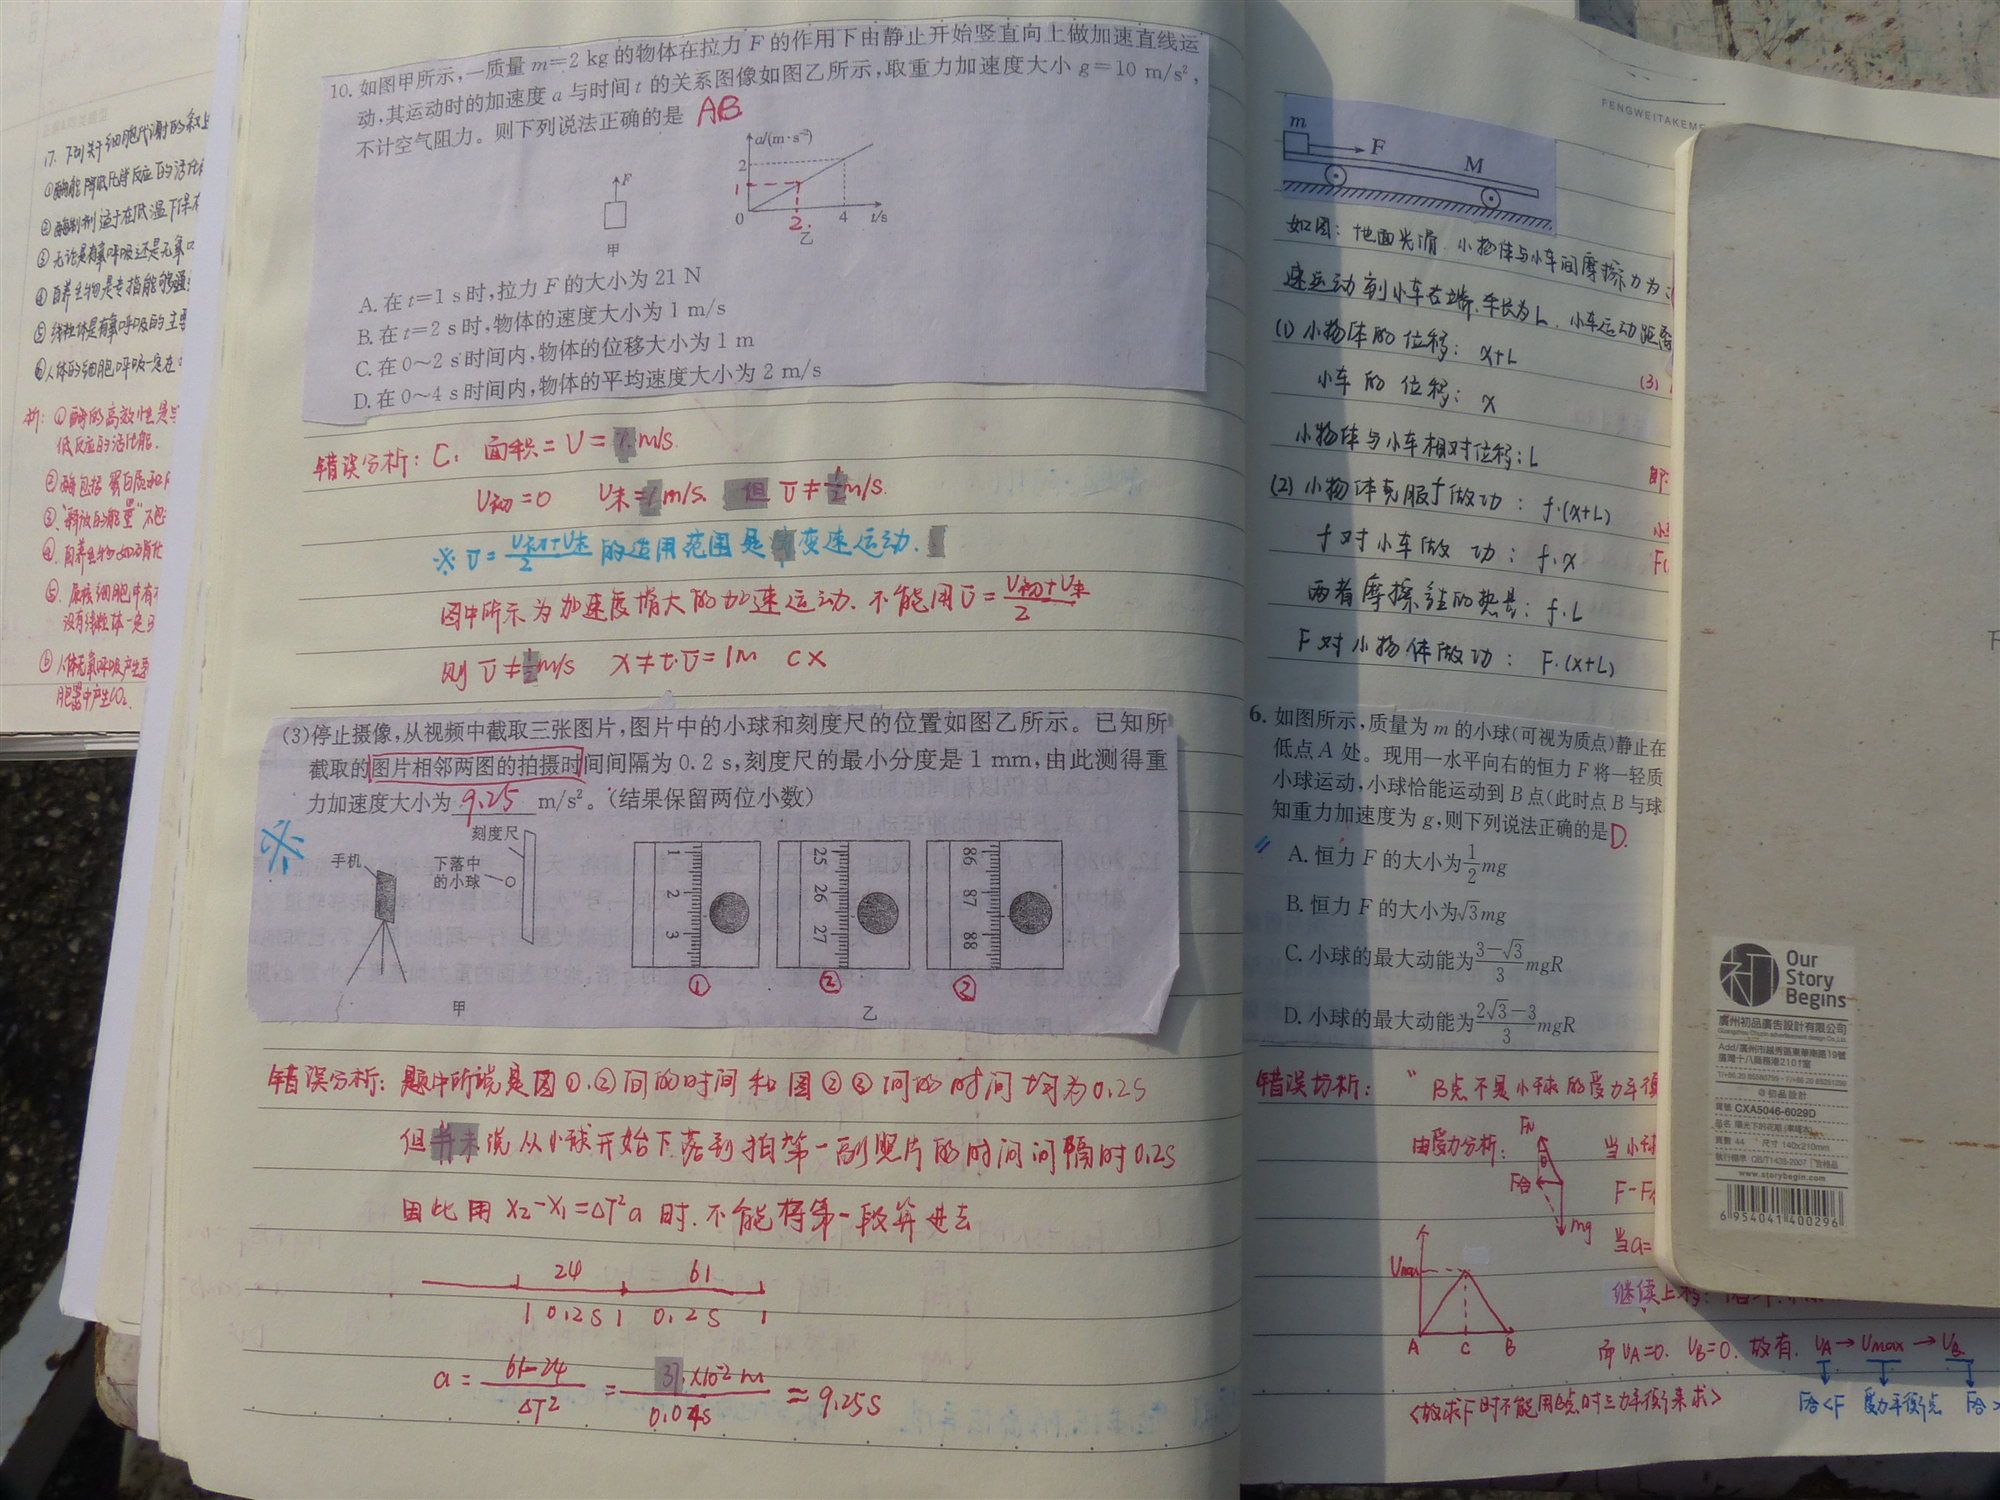 17. 下列关于细胞代谢的叙述
①酶能降低化学反应的活化
②酶制剂适于在低温下保存
③无论是有氧呼吸还是无氧
④自养生物是专指能够通
⑤线粒体是有氧呼吸的主要
⑥人体的细胞呼吸一定在
析：①酶的高效性是
低反应的活化能.
②酶包括蛋白质和
③"释放的能量"不包
④.自养生物如硝化
⑤.原核细胞中有
没有线粒体一定
⑥人体无氧呼吸产生
胞器中产生CO₂.
10. 如图甲所示,一质量 m=2 kg 的物体在拉力 F 的作用下由静止开始竖直向上做加速直线运
动,其运动时的加速度 a 与时间 t 的关系图像如图乙所示,取重力加速度大小 g=10 m/s²,
不计空气阻力。则下列说法正确的是 AB
F
甲
a/(m·s⁻²)
2
1
0 2. 4 t/s
乙
A. 在 t=1 s 时,拉力 F 的大小为 21 N
B. 在 t=2 s 时,物体的速度大小为 1 m/s
C. 在 0~2 s 时间内,物体的位移大小为 1 m
D. 在 0~4 s 时间内,物体的平均速度大小为 2 m/s
错误分析: C. 面积=U=1m/s.
U初=0 U末=1m/s. 但 U̅≠½m/s.
※ U̅=(U初+U末)/2 的适用范围是匀变速运动.
图中所示为加速度增大的加速运动. 不能用U̅=(U初+U末)/2
则 U̅≠½m/s x≠t·U̅=1m C×
(3)停止摄像,从视频中截取三张图片,图片中的小球和刻度尺的位置如图乙所示。已知所
截取的图片相邻两图的拍摄时间间隔为 0.2 s,刻度尺的最小分度是 1 mm,由此测得重
力加速度大小为 9.25 m/s²。(结果保留两位小数)
※
手机
刻度尺
下落中
的小球
甲
1 2 3
25 26 27
86 87 88
① ② ③
乙
错误分析: 题中所说是图①.②间的时间和图②③间的时间均为0.2s
但并未说从小球开始下落到拍第一副照片的时间间隔时0.2s
因此用 x₂-x₁=ΔT²a 时.不能将第一段算进去
24 61
0.2s 0.2s
a=(61-24)/ΔT²=37×10⁻²m/0.04s=9.25s
FENGWEITAKEME
m
F
M
如图: 地面光滑. 小物体与小车间摩擦力为
速运动到小车右端.车长为L. 小车运动距离
(1) 小物体的位移: x+L
(3)
小车的位移: x
小物体与小车相对位移: L
即:
(2) 小物体克服f做功: f·(x+L)
f对小车做功: f·x
两者摩擦生的热是: f·L
F对小物体做功: F·(x+L)
6. 如图所示,质量为 m 的小球(可视为质点)静止在
低点 A 处。现用一水平向右的恒力 F 将一轻质
小球运动,小球恰能运动到 B 点(此时点 B 与球
知重力加速度为 g,则下列说法正确的是 D.
A. 恒力 F 的大小为 1/2 mg
B. 恒力 F 的大小为√3mg
C. 小球的最大动能为 (3-√3)/3 mgR
D. 小球的最大动能为 (2√3-3)/3 mgR
错误分析: "B点不是小球的受力平
由受力分析:
FN
θ
F合
mg
当小球
当a=
Umax
A C B
继续上移:
而 UA=0. UB=0. 故有. UA→Umax→UB
F合<F 受力平衡点 F合>
<故求F时不能用B点时三力平衡来求>
Our
Story
Begins
廣州初品廣告設計有限公司
Guangzhou Chupin advertisement design Co.,Ltd.
Add/廣州市越秀區東華南路19號
廣灣十八商務港2101室
初品設計
貨號 CXA5046-6029D
頁數 44 尺寸 140x210mm
執行標準 QB/T1438-2007 合格品
www.storybegin.com
6 954041 400296